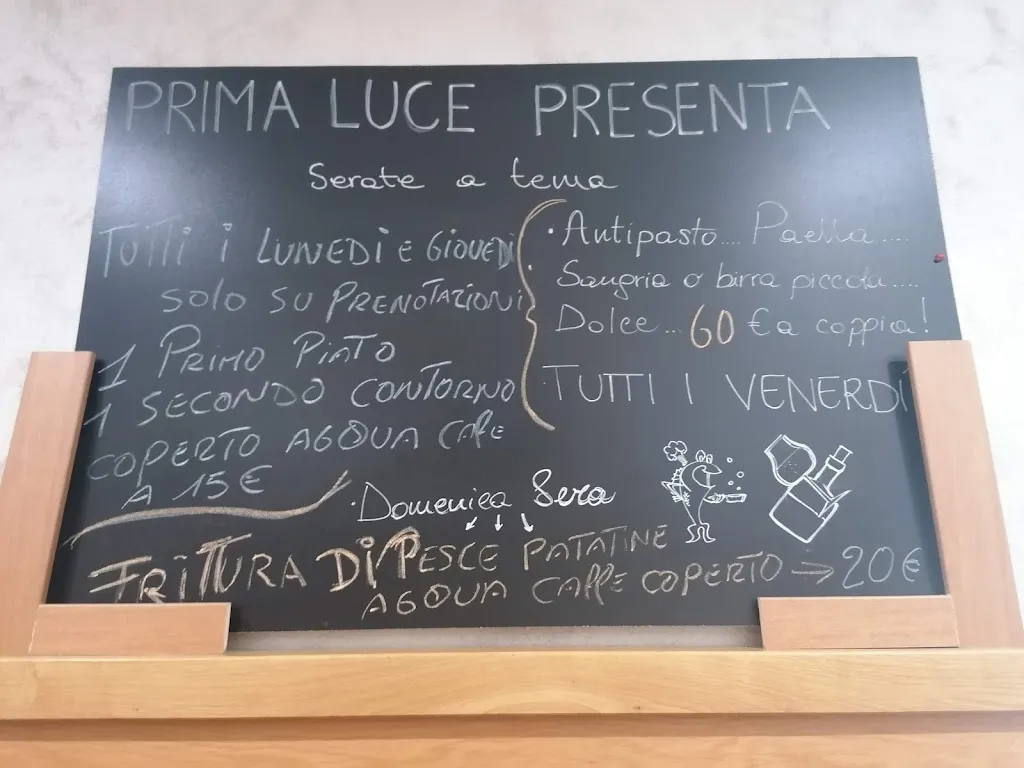 PRIMA LUCE PRESENTA
Serate a tema
TUTTI i LUNEDI e GIOVEDI
SOLO SU PRENOTAZIONI
1 PRIMO PIATO
1 SECONDO CONTORNO
COPERTO AGQUA CAFFE
A 15€
· Antipasto.... Paella....
Sangria o birra piccola....
Dolce... 60 € a coppia!
TUTTI I VENERDÌ
· Domenica Sera
FRITTURA DI PESCE PATATINE
AGQUA CAFFE COPERTO → 20€